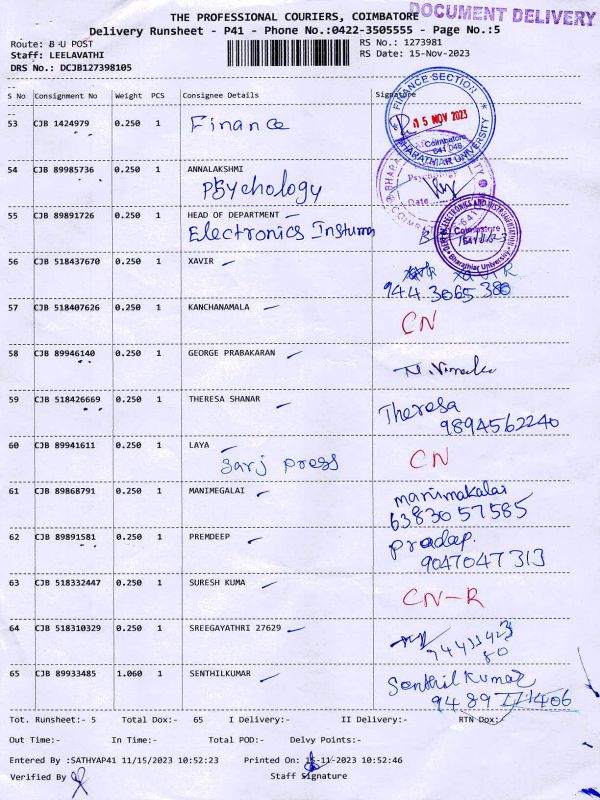 THE PROFESSIONAL COURIERS, COIMBATORE
DOCUMENT DELIVERY
Delivery Runsheet - P41 - Phone No.:0422-3505555 - Page No.:5
Route: B U POST
RS No.: 1273981
Staff: LEELAVATHI
RS Date: 15-Nov-2023
DRS No.: DCJB127398105
S No Consignment No Weight PCS Consignee Details Signature
FINANCE SECTION
15 NOV 2023
Coimbatore
641 046
BHARATHIAR UNIVERSITY
53 CJB 1424979 0.250 1 Finance
54 CJB 89985736 0.250 1 ANNALAKSHMI
Psychology
Date
55 CJB 89891726 0.250 1 HEAD OF DEPARTMENT
Electronics Instumn
Coimbatore
Bharathiar University
56 CJB 518437670 0.250 1 XAVIR
944 3065 380
57 CJB 518407626 0.250 1 KANCHANAMALA CN
58 CJB 89946140 0.250 1 GEORGE PRABAKARAN
59 CJB 518426669 0.250 1 THERESA SHANAR Theresa
9894562240
60 CJB 89941611 0.250 1 LAYA CN
Sarj press
61 CJB 89868791 0.250 1 MANIMEGALAI manimakalai
6383057585
62 CJB 89891581 0.250 1 PREMDEEP pradap.
9047047313
63 CJB 518332447 0.250 1 SURESH KUMA CN-R
64 CJB 518310329 0.250 1 SREEGAYATHRI 27629
65 CJB 89933485 1.060 1 SENTHILKUMAR Senthil Kumar
Tot. Runsheet:- 5 Total Dox:- 65 I Delivery:- II Delivery:- RTN Dox:-
Out Time:- In Time:- Total POD:- Delvy Points:-
Entered By :SATHYAP41 11/15/2023 10:52:23 Printed On: 15-11-2023 10:52:46
Verified By Staff Signature